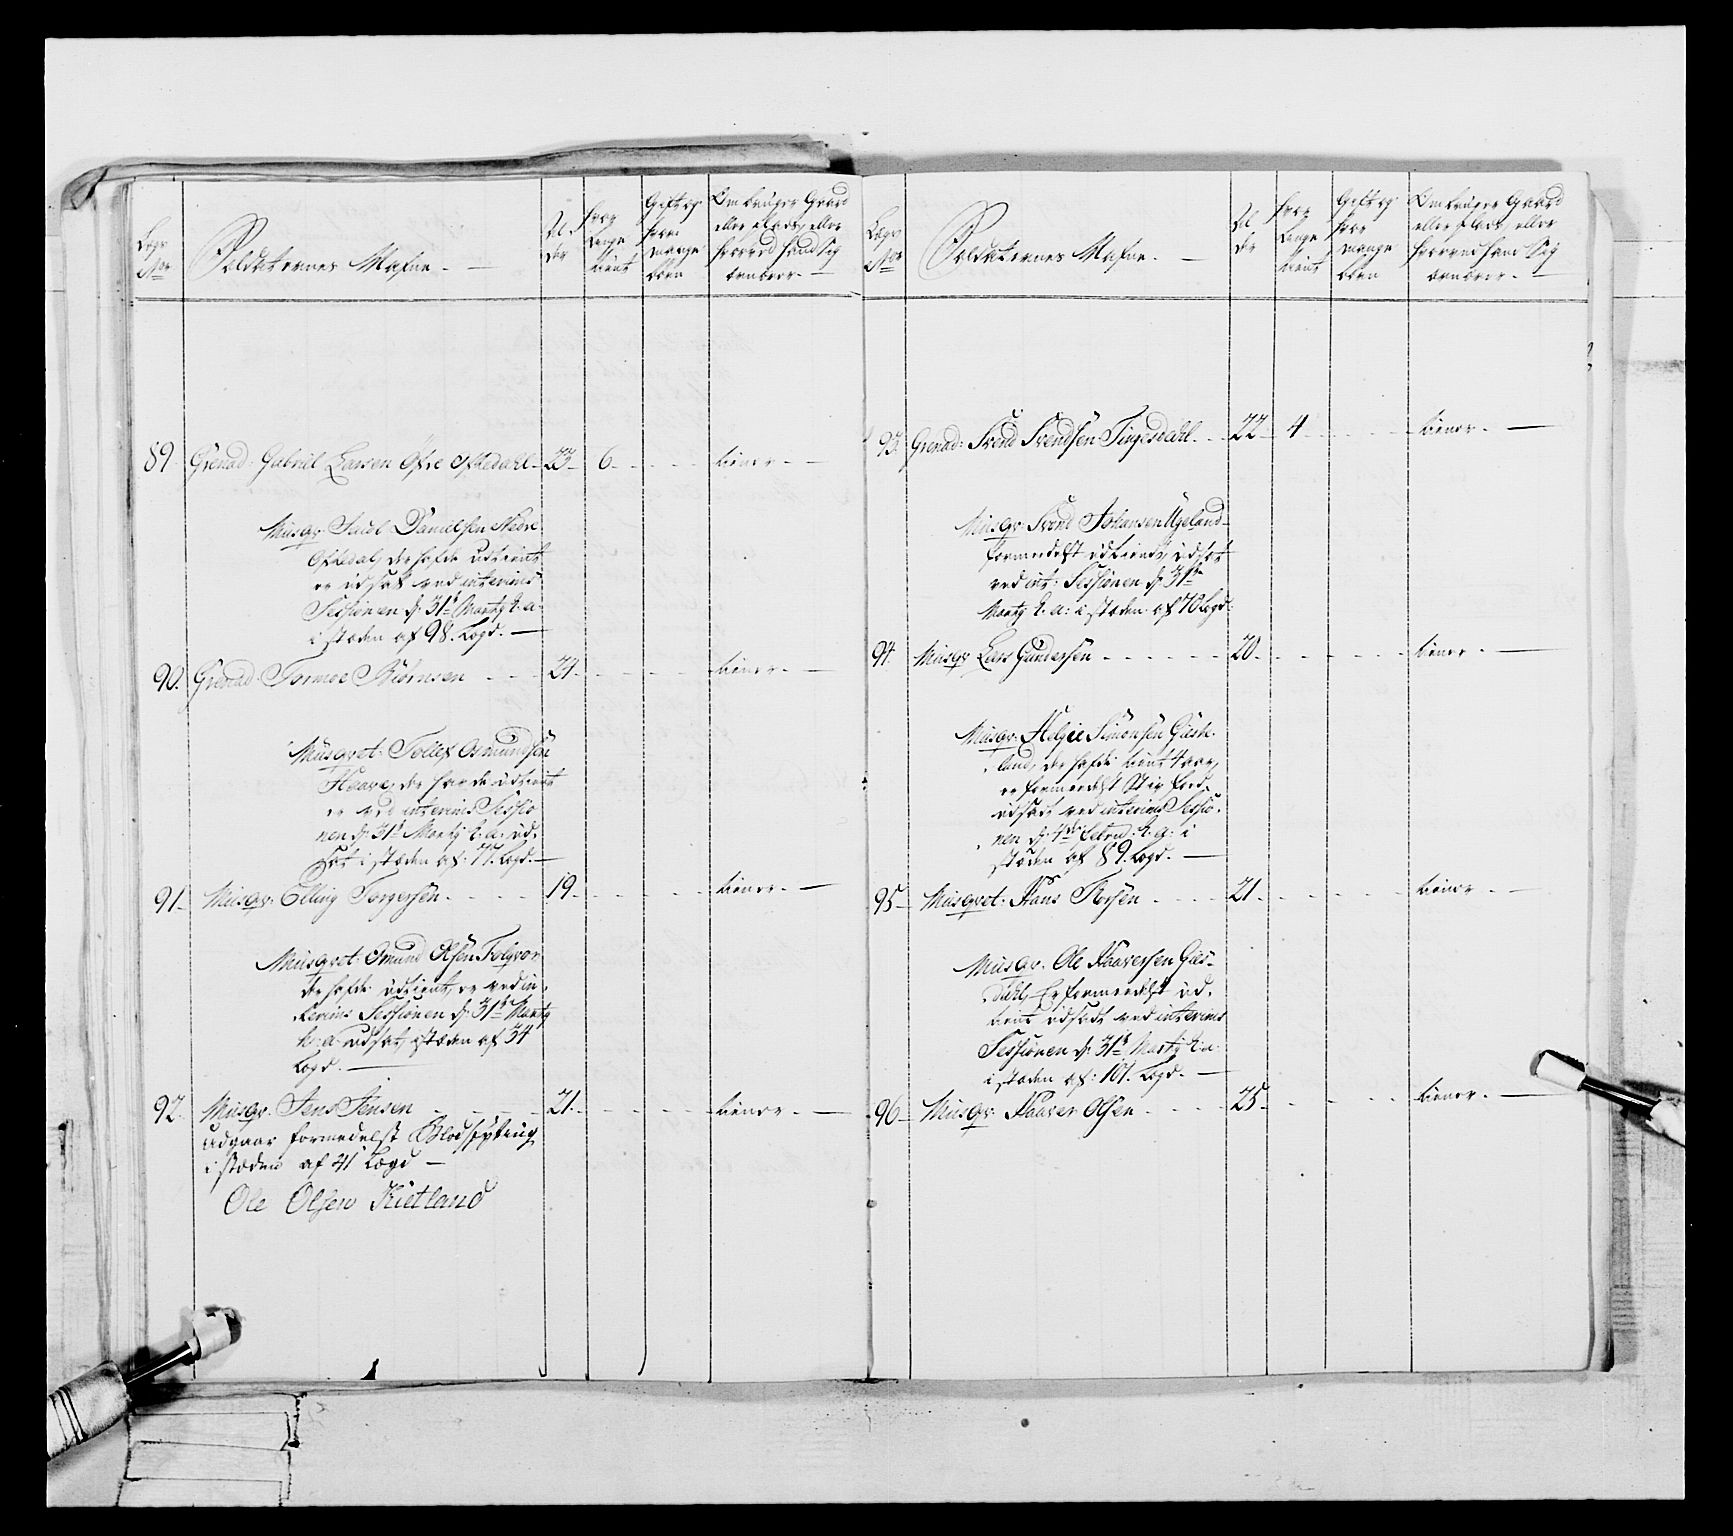 Lægs No
Soldaternes Nafne. —
Al der
hvor lenge tient
Gift og hvor mange børn
Om bruger Gaard
eller plads, eller
hvorved hand sig
ernærer. —
89. Grenad: Gabriel Larsen Øfre Ofstedahl 23 6 tiener. —
Musqr: Paul Danielsen Nedre
Ofstedal, der hafde udtient
er udsat ved interims
Sessionen d: 31te Marty h: a:
i stæden af 98. Lægd. —
90. Grenad: Tormoe Biørnsen 24. tiener. —
Musqvet: Tollef Osmundsen
Haave, der havde udtient
er ved interims Sessio
nen d: 31te Marty h: a: ud,
sat i stæden af: 77. Lægd. —
91. Musqr: Elling Torgersen 19. tiener. —
Musqvet: Omund Olsen
der hafde udtient, er ved in,
terims Sessionen d: 31te Marty
h: a: udsat, i stæden af 34
Lægd. —
92. Musqr. Jens Jensen 21. tiener. —
Udgaar formedelst Blodspyting
i stæden af 41 Lægd —
Ole Olsen Kietland
Lægs No
Soldaternes Nafne. —
Al der
hvor lenge tient
Gift og hvor mange børn
Om bruger Gaard
eller plads, eller
hvorved hand sig
ernærer. —
93. Grenad: Svend Svendsen Tingesdahl 22 4 tiener. —
Musqr: Svend Johansen Ugeland
formedelst udtient, udsat
ved int: Sessionen d: 31te
Marty h: a: i stæden af 70 Lægd:
94. Musqr Lars Gundersen 20. tiener. —
Musqr: Helgie Simonsen
land, der hafde tient 4 aar,
er formedelst
udsadt ved interims Sessio,
nen d: 4de Febru: h: a: i
stæden af 89. Lægd. —
95. Musqvet: Hans Thorsen 21. tiener. —
Musqr. Ole Haaversen
dahl, Er formedelst ud,
tient udsadt ved interims
Sessionen d: 31te Marty h: a:
i stæden af: 101. Lægd. —
96. Musqr: Haaver Olsen 25. tiener. —